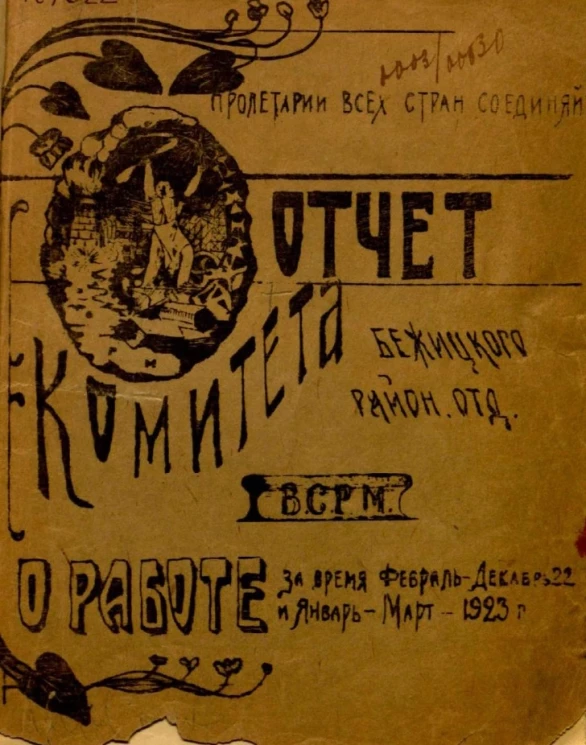 0003/00630
ПРОЛЕТАРИИ ВСЕХ СТРАН СОЕДИНЯЙ
ОТЧЕТ
КОМИТЕТА
БЕЖИЦКОГО
РАЙОН. ОТД.
ВСРМ
О РАБОТЕ
ЗА ВРЕМЯ ФЕВРАЛЬ-ДЕКАБРЬ 22
И ЯНВАРЬ-МАРТ-1923 г